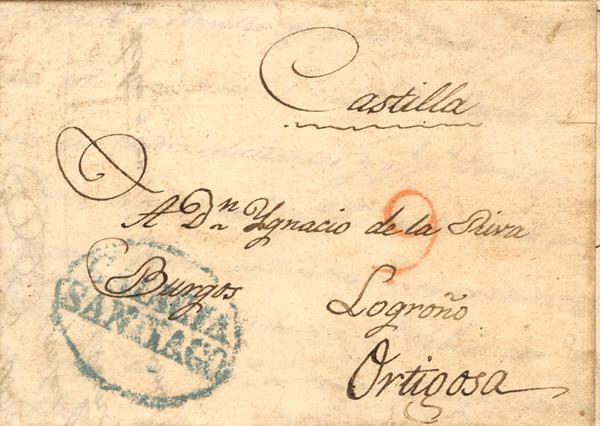 Castilla
9
A Dn. Ygnacio de la Riva
Burgos
Logroño
SANTIAGO
Ortigosa